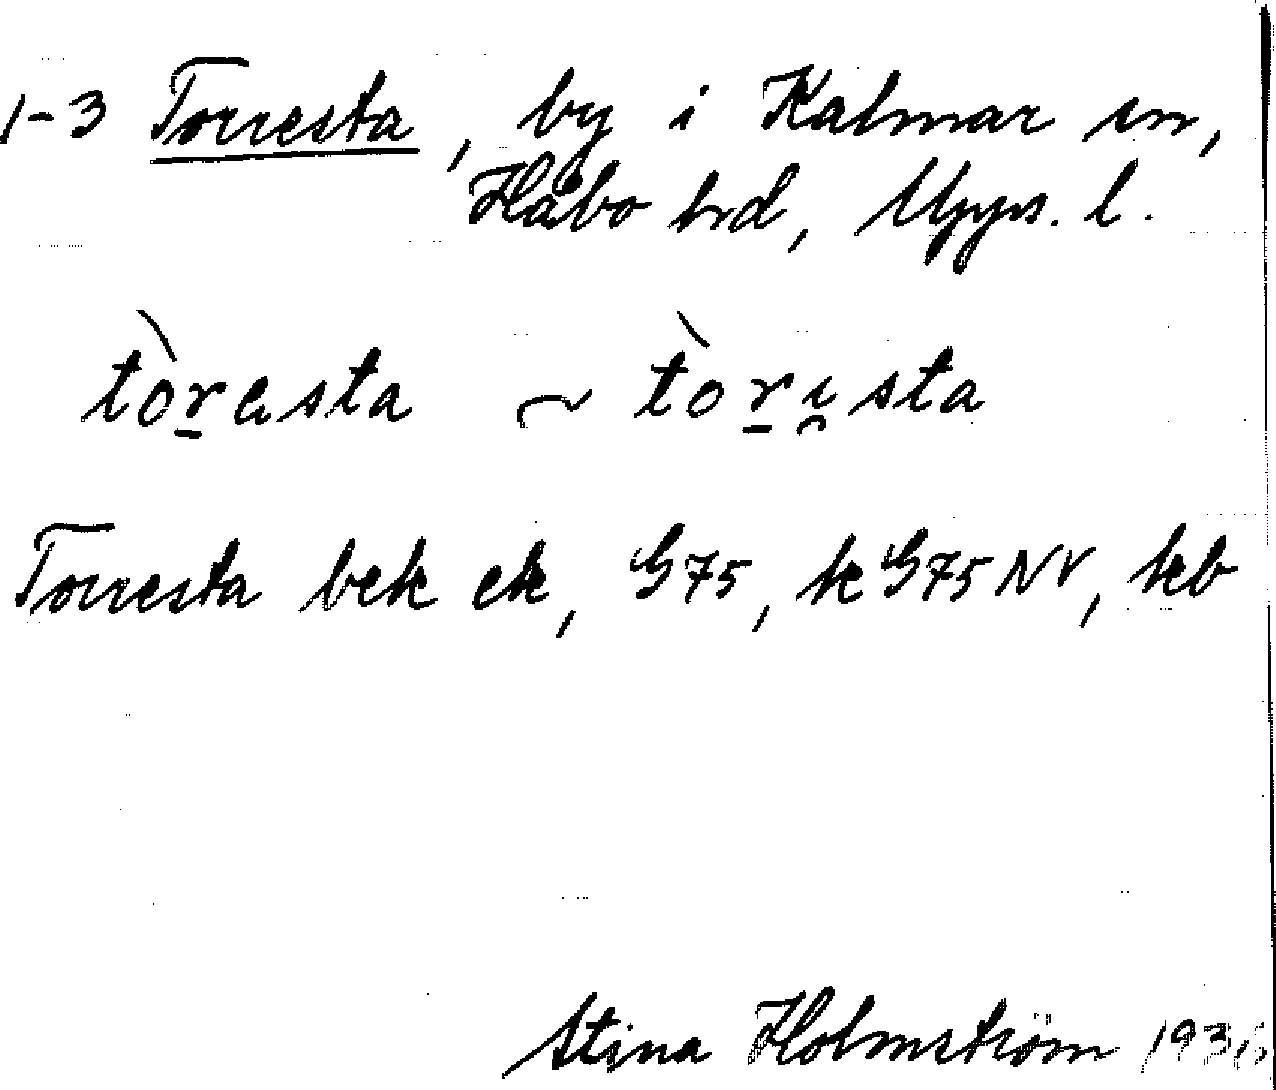 1-3 Torresta, by i Kalmar sn,
Håbo hrd, Upps. l.
tòrasta ~ tòrı̯sta
Torresta bek ek, G75, k G75 NV, kb
Stina Holmström